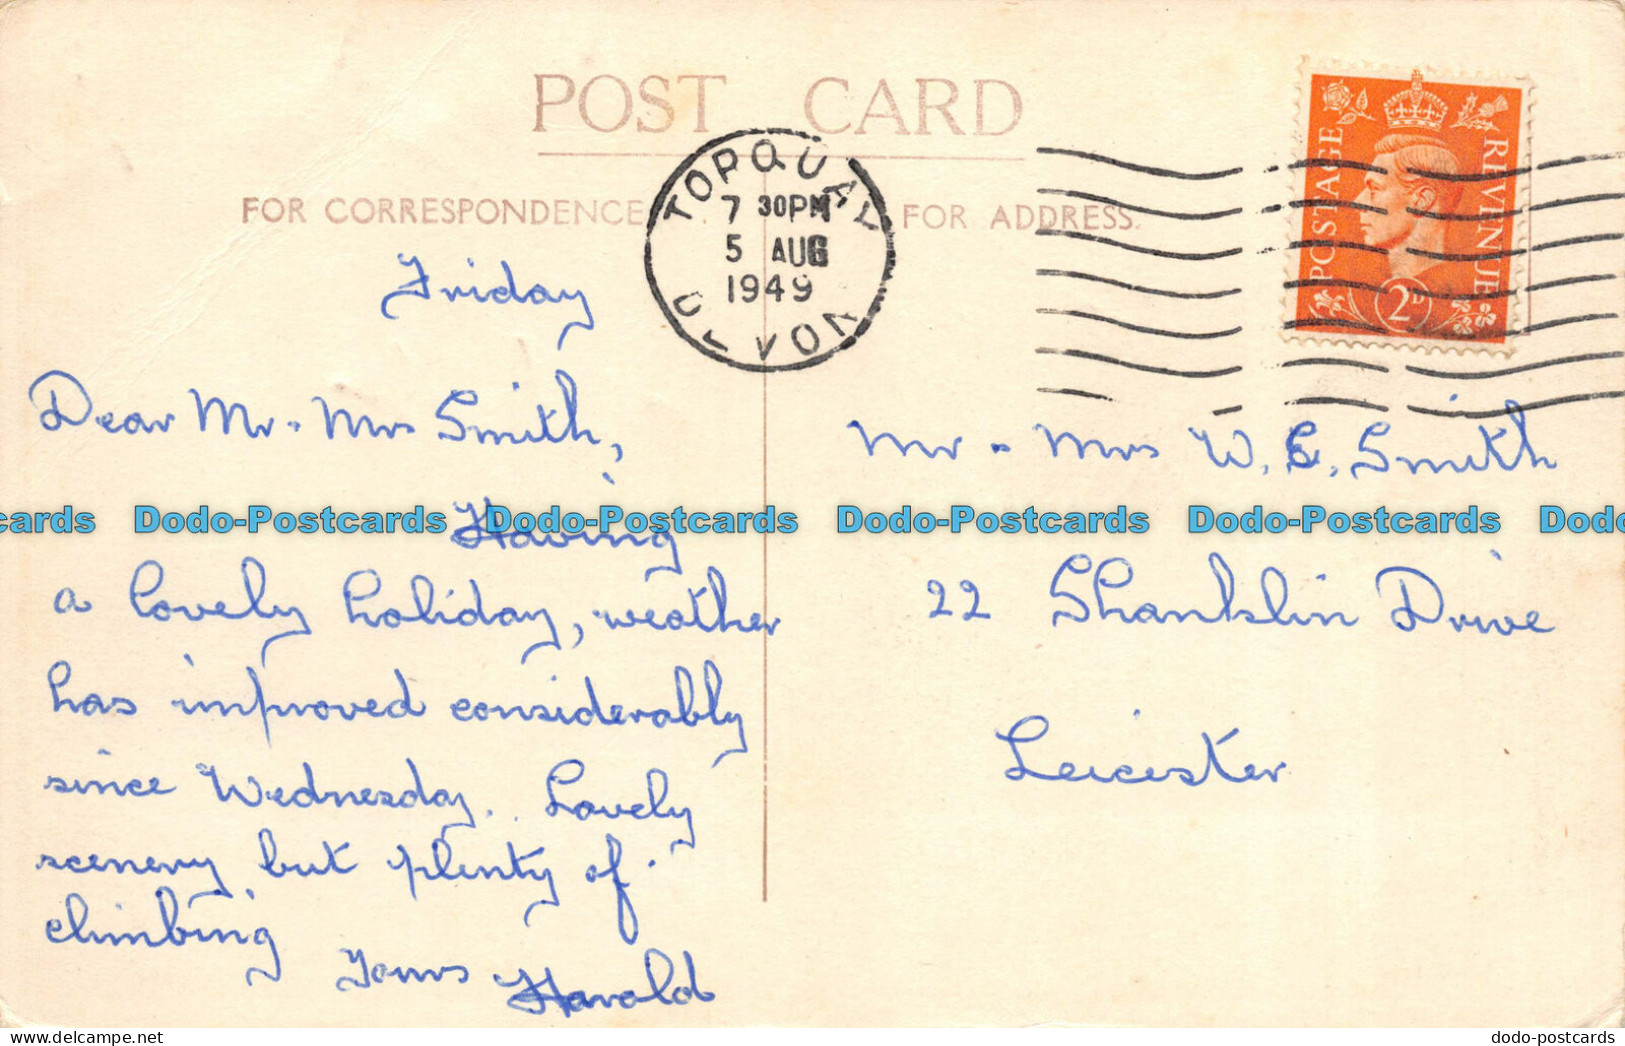 POST CARD
FOR CORRESPONDENCE
FOR ADDRESS.
TORQUAY
7 30PM
5 AUG
1949
DEVON
POSTAGE
REVENUE
2D
Friday
Dear Mr. Mrs Smith,
Having
a lovely holiday, weather
has improved considerably
since Wednesday. Lovely
scenery, but plenty of
climbing
Yours Harold
Mr. Mrs W. E. Smith
22 Shanklin Drive
Leicester
cards Dodo-Postcards Dodo-Postcards Dodo-Postcards Dodo-Postcards Dodo
dodo-postcards
delcampe.net